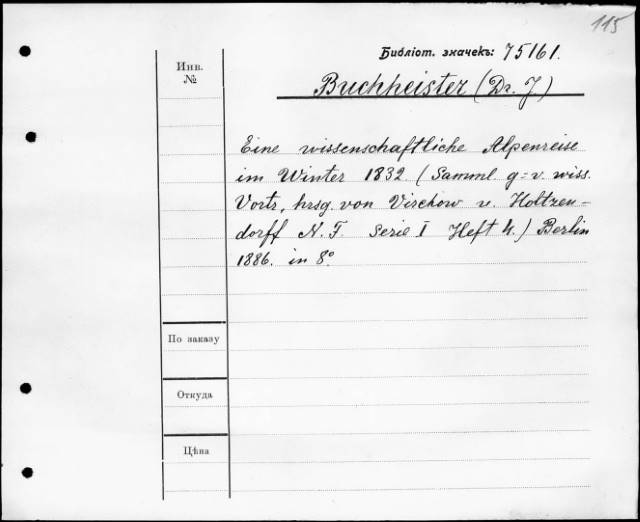 115
Библіот. значекъ: 75161.
Инв.
№
Buchheister (Dr. J)
Eine wissenschaftliche Alpenreise
im Winter 1832. (Samml. g=v. wiss.
Vortr, hrsg. von Virchow u. Holtzen-
dorff N. F. Serie I Heft 4.) Berlin
1886. in 8°.
По заказу
Откуда
Цѣна